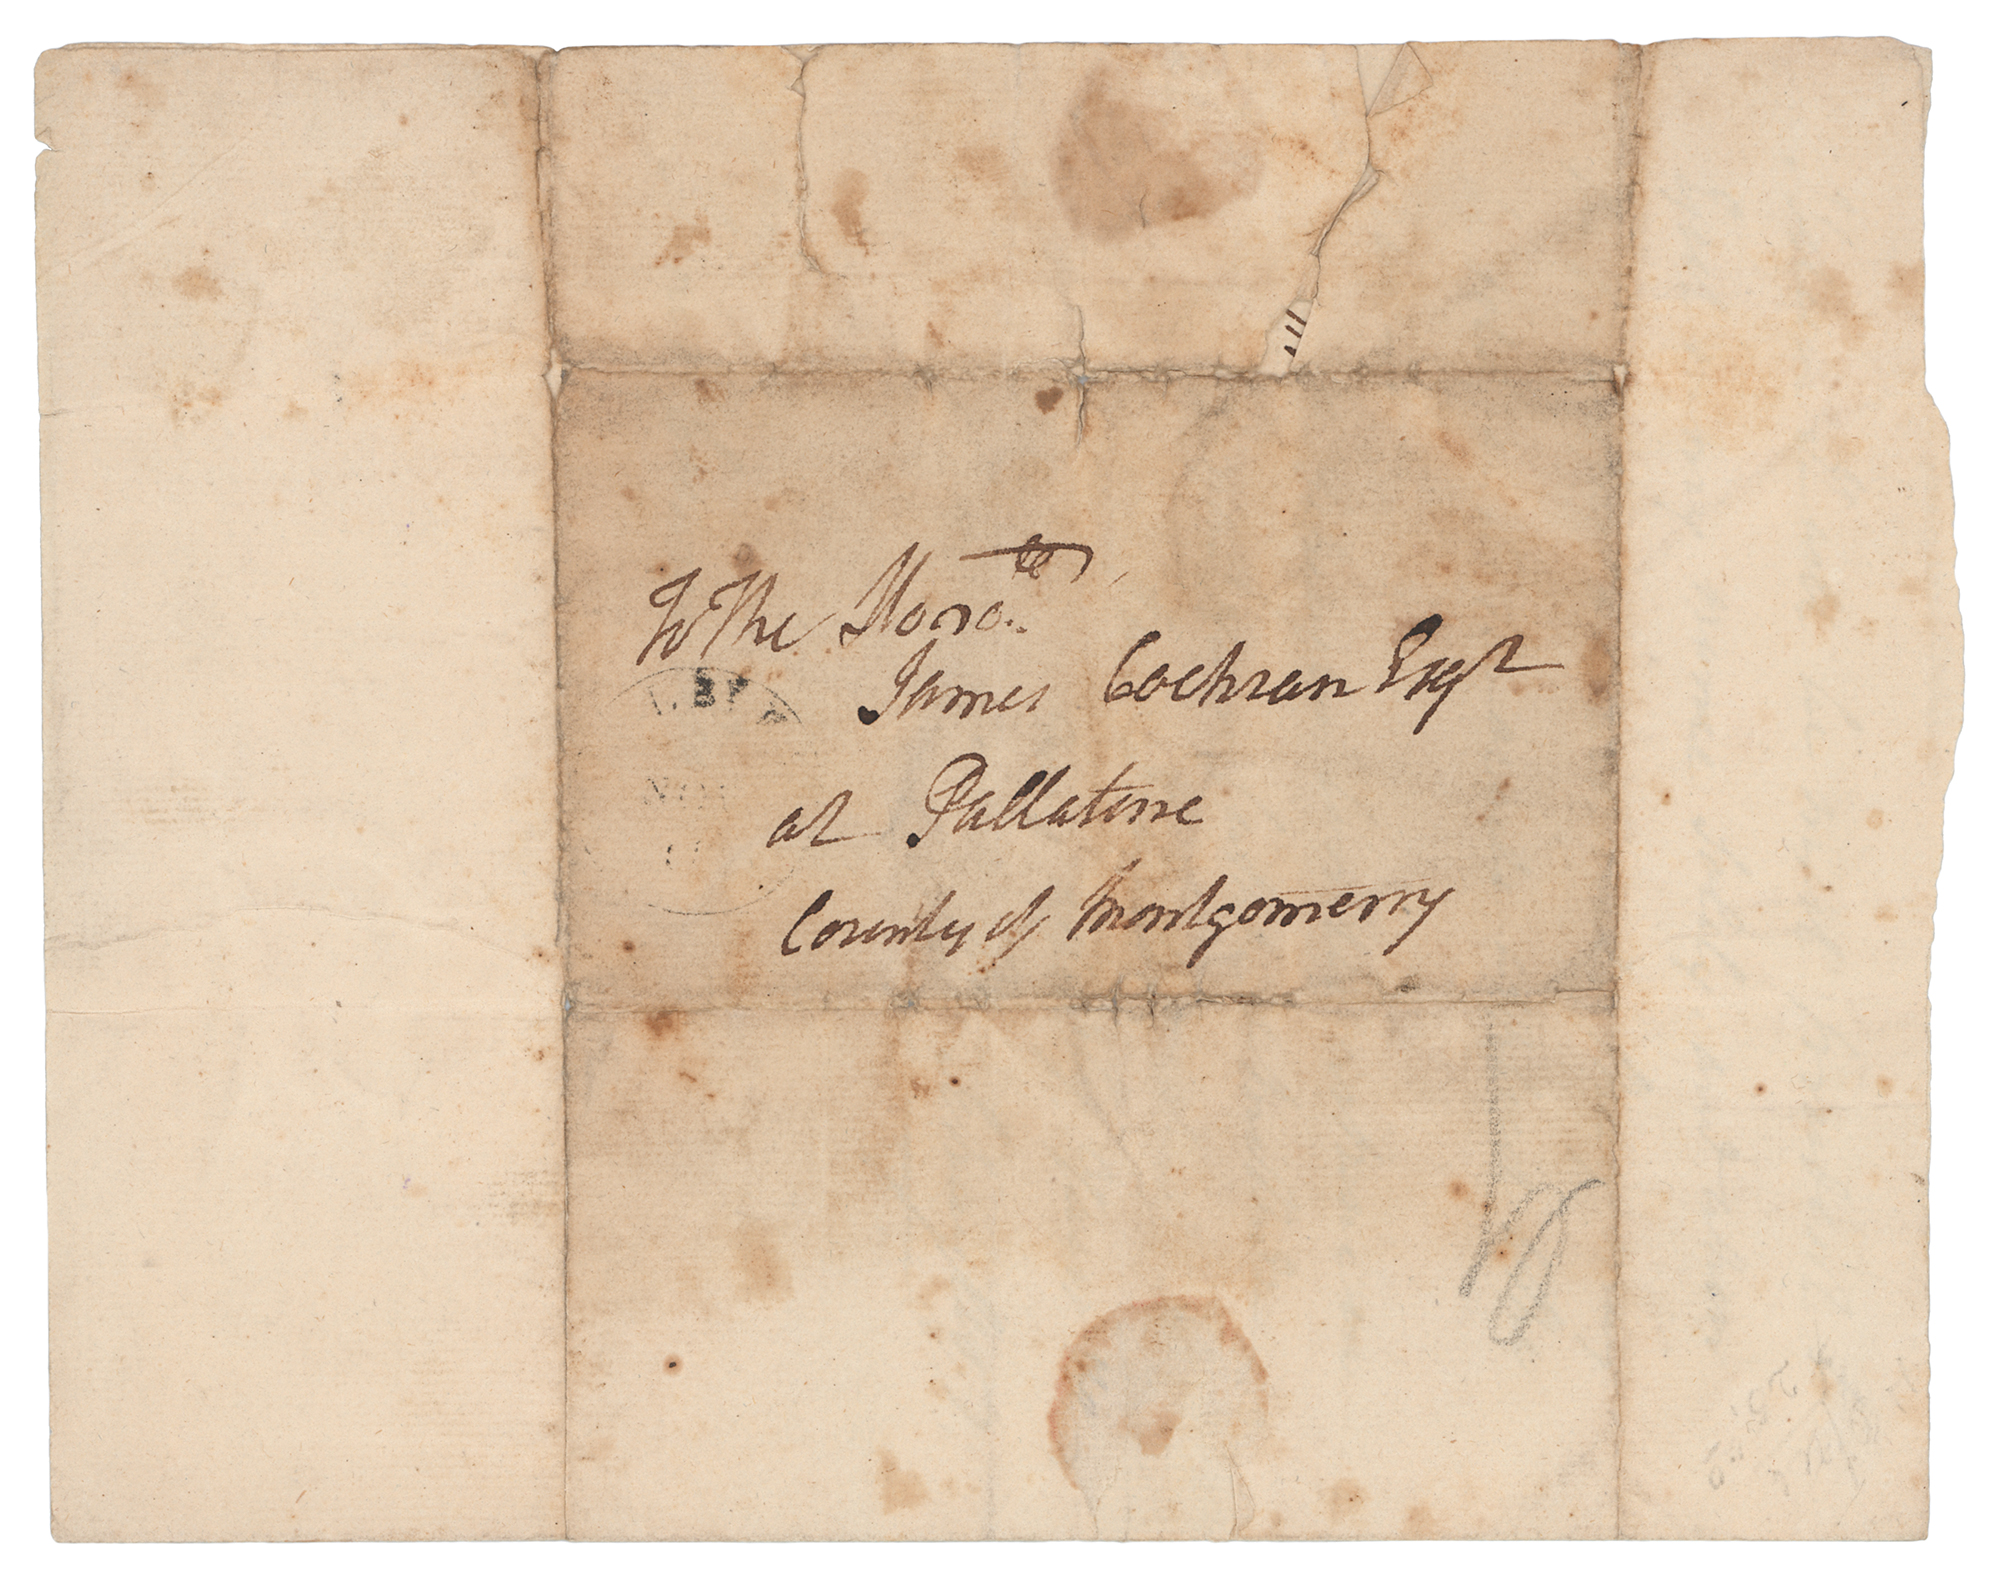 To The Hono.ble
James Cochran Esqr
at Pallatine
County of Montgomerry
10